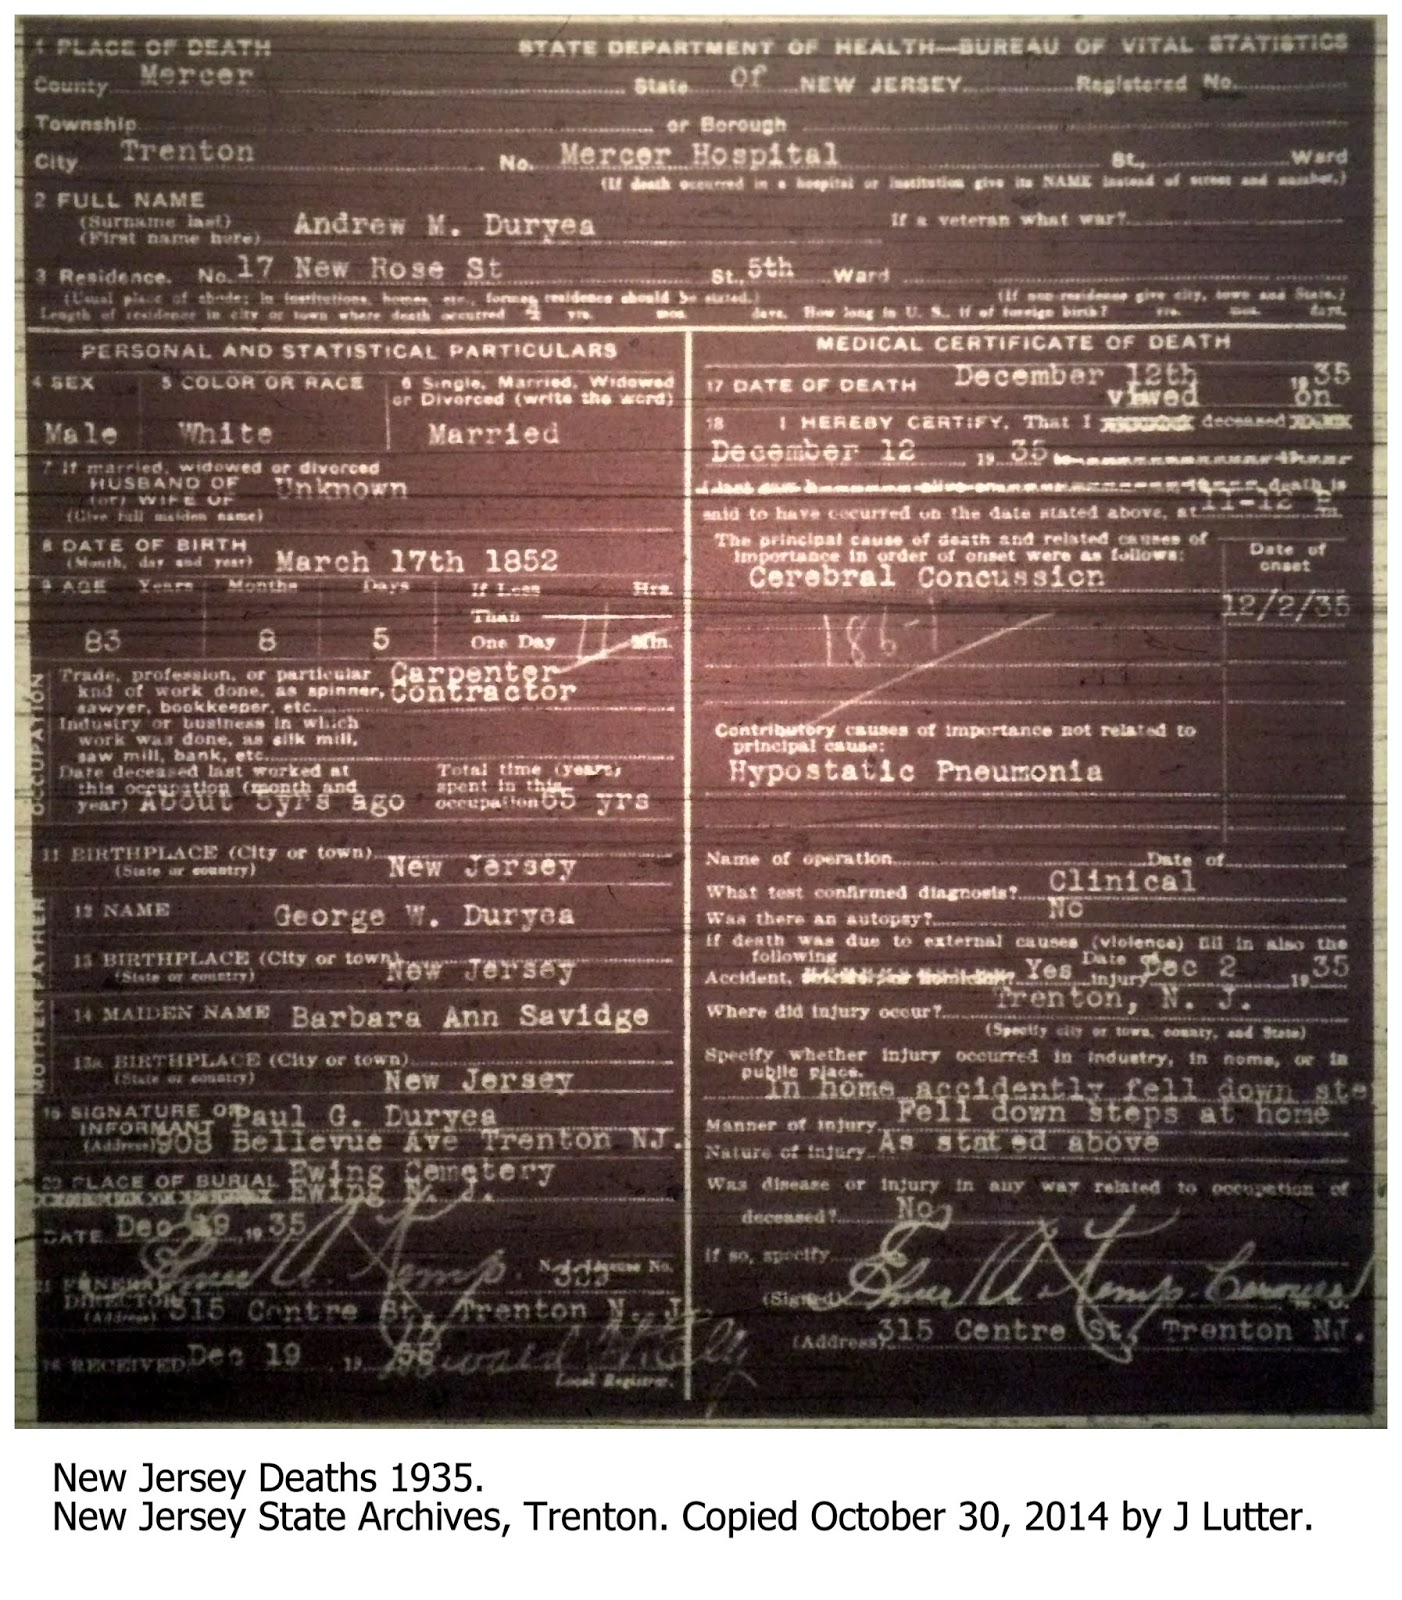 1 PLACE OF DEATH STATE DEPARTMENT OF HEALTH—BUREAU OF VITAL STATISTICS
County Mercer State Of NEW JERSEY Registered No.
Township or Borough
City Trenton No. Mercer Hospital St., Ward
(If death occurred in a hospital or institution give its NAME instead of street and number.)
2 FULL NAME
(Surname last) Andrew M. Duryea If a veteran what war?
(First name here)
3 Residence. No. 17 New Rose St St. 5th Ward
(Usual place of abode; in institutions, homes, etc., former residence should be stated.) (If non-residence give city, town and State.)
Length of residence in city or town where death occurred yrs. mos. days. How long in U. S., if of foreign birth? yrs. mos. days.
PERSONAL AND STATISTICAL PARTICULARS
4 SEX 5 COLOR OR RACE 6 Single, Married, Widowed
or Divorced (write the word)
Male White Married
7 If married, widowed or divorced
HUSBAND OF Unknown
(or) WIFE OF
(Give full maiden name)
8 DATE OF BIRTH
(Month, day and year) March 17th 1852
9 AGE Years Months Days If Less Hrs.
Than
83 8 5 One Day Min.
OCCUPATION
Trade, profession, or particular Carpenter
knd of work done, as spinner, Contractor
sawyer, bookkeeper, etc.
Industry or business in which
work was done, as silk mill,
saw mill, bank, etc.
Date deceased last worked at Total time (years)
this occupation (month and spent in this
year) About 3yrs ago occupation 65 yrs
11 BIRTHPLACE (City or town) New Jersey
(State or country)
FATHER
12 NAME George W. Duryea
13 BIRTHPLACE (City or town) New Jersey
(State or country)
MOTHER
14 MAIDEN NAME Barbara Ann Savidge
13a BIRTHPLACE (City or town)
(State or country) New Jersey
SIGNATURE OF Paul G. Duryea
INFORMANT
(Address) 908 Bellevue Ave Trenton NJ.
20 PLACE OF BURIAL Ewing Cemetery
Ewing N. J.
DATE Dec 19, 1935
21 FUNERAL Elmer A. Kemp. License No.
DIRECTOR
(Address) 315 Centre St, Trenton N. J.
RECEIVED Dec 19 19
Local Registrar.
MEDICAL CERTIFICATE OF DEATH
17 DATE OF DEATH December 12th 1935
viewed on
18 I HEREBY CERTIFY, That I deceased
December 12 1935
death is
said to have occurred on the date stated above, at 11-12 P m.
The principal cause of death and related causes of Date of
importance in order of onset were as follows: onset
Cerebral Concussion
12/2/35
Contributory causes of importance not related to
principal cause:
Hypostatic Pneumonia
Name of operation Date of
What test confirmed diagnosis? Clinical
Was there an autopsy? No
If death was due to external causes (violence) fill in also the
following
Accident, Yes Date of injury Dec 2 1935
Where did injury occur? Trenton, N. J.
(Specify city or town, county, and State)
Specify whether injury occurred in industry, in home, or in
public place.
In home accidently fell down ste
Manner of injury Fell down steps at home
Nature of injury As stated above
Was disease or injury in any way related to occupation of
deceased? No
If so, specify
(Signed) Elmer A. Kemp
(Address) 315 Centre St, Trenton NJ.
New Jersey Deaths 1935.
New Jersey State Archives, Trenton. Copied October 30, 2014 by J Lutter.